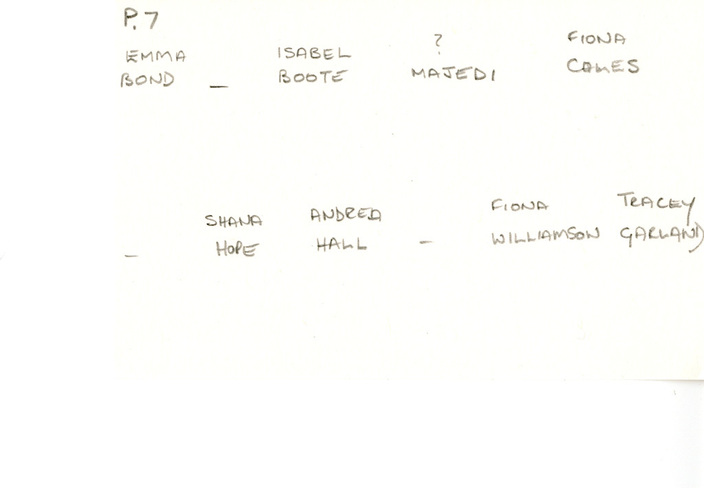 P.7
EMMA ISABEL ? FIONA
BOND _ BOOTE MAJEDI
SHANA ANDREA FIONA TRACEY
_ HOPE HALL - WILLIAMSON GARLAND